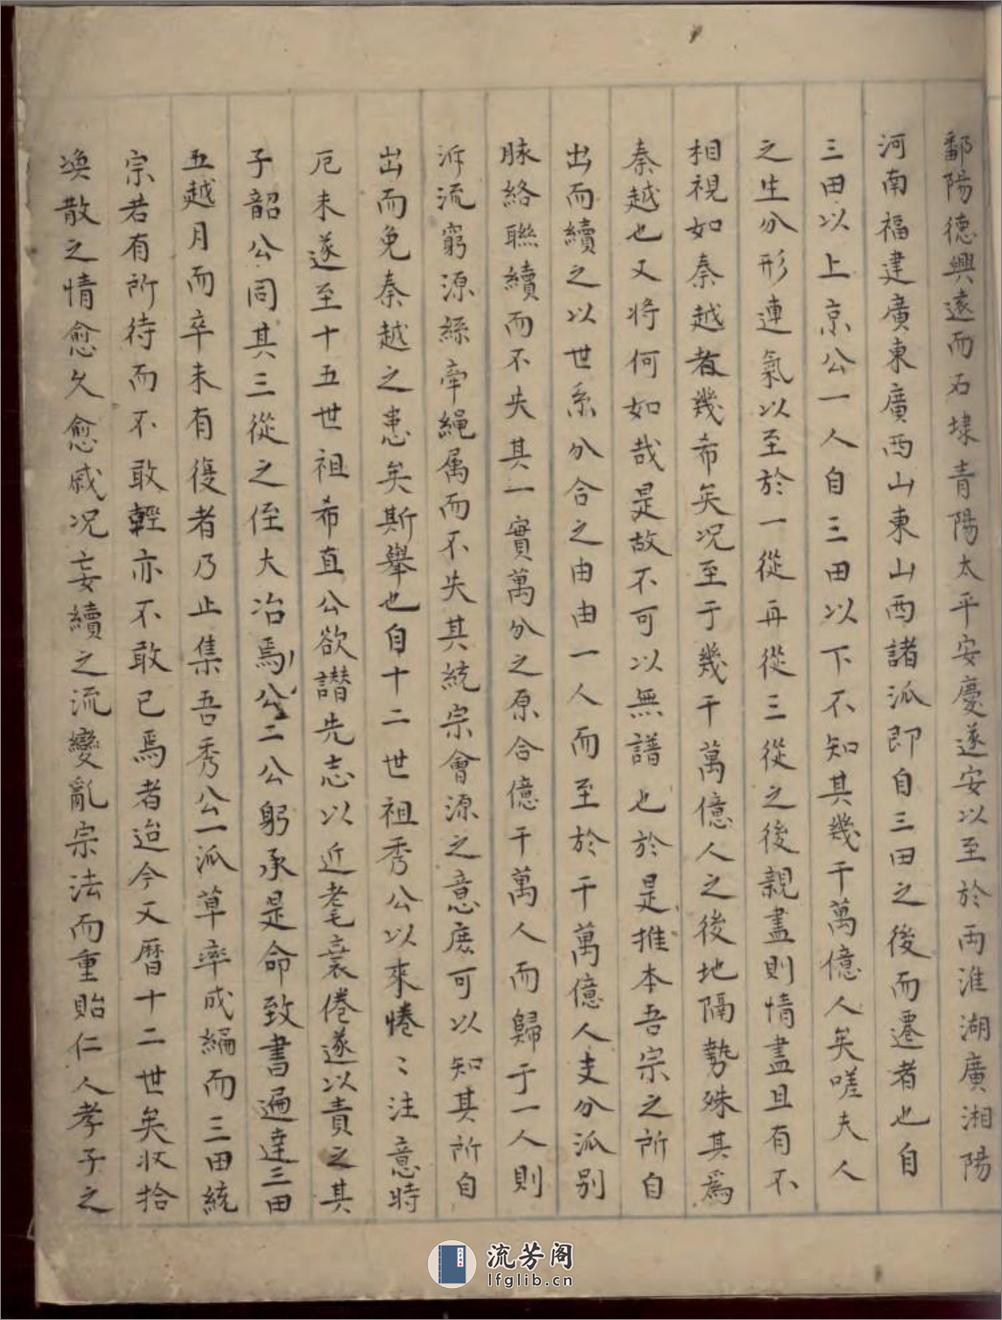 鄱陽德興遠而石埭青陽太平安慶遂安以至於两淮湖廣湘陽
河南福建廣東廣西山東山西諸派即自三田之後而遷者也自
三田以上京公一人自三田以下不知其幾千萬億人矣嗟夫人
之生分形連氣以至於一從再從三從之後親盡則情盡且有不
相視如秦越者幾希矣况至于幾千萬億人之後地隔勢殊其爲
秦越也又将何如哉是故不可以無譜也於是推本吾宗之所自
出而續之以世系分合之由由一人而至於千萬億人支分派别
脉絡聯續而不失其一實萬分之原合億千萬人而歸于一人則
泝流窮源絲牽繩属而不失其統宗會源之意庶可以知其所自
出而免秦越之患矣斯舉也自十二世祖秀公以來惓〻注意時
厄未遂至十五世祖希直公欲譛先志以近耄衰倦遂以責之其
子韶公同其三從之侄大冶焉公二公躬承是命致書遍達三田
五越月而卒未有復者乃止集吾秀公一派草率成編而三田統
宗若有所待而不敢輕亦不敢已焉者迨今又曆十二世矣收拾
渙散之情愈久愈戚况妄續之流變亂宗法而重貽仁人孝子之
流芳阁
lfglib.cn